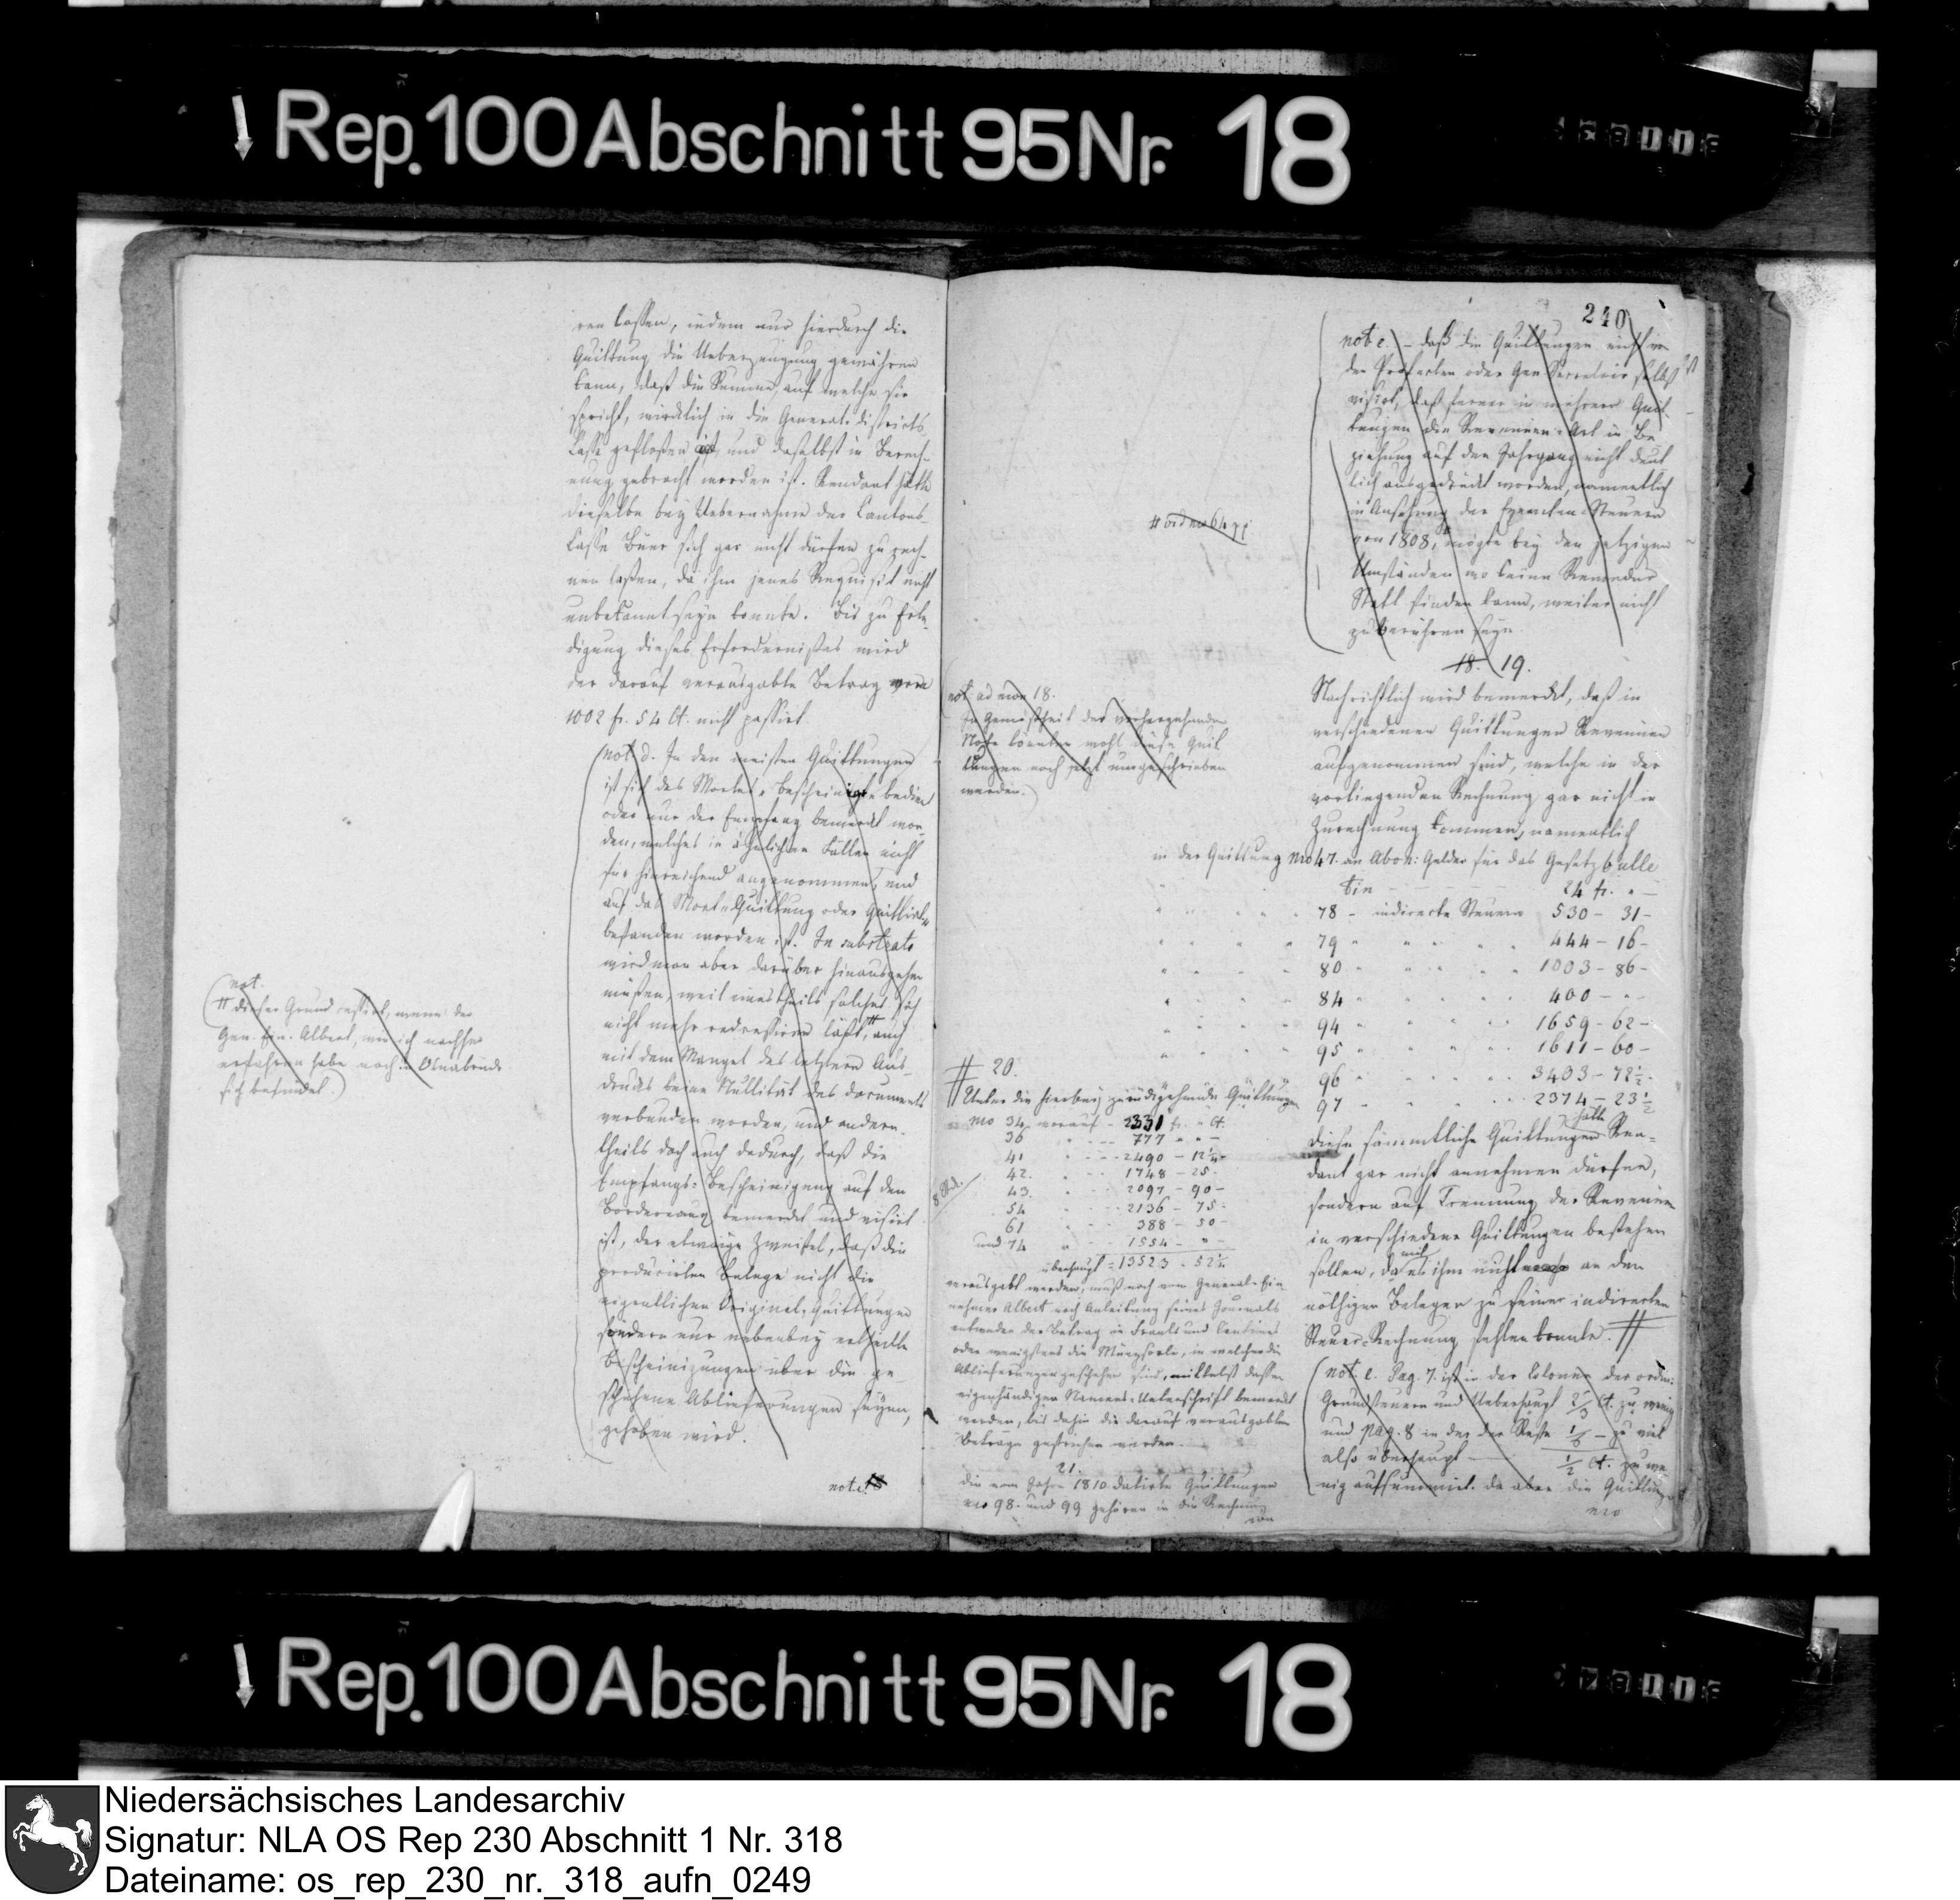 Rep. 100 Abschnitt 95 Nr. 18
ren lassen, indem nur hierdurch die
Quittung die Ueberzeugung gewähren
kann, daß die Summe, auf welche sie
spricht, wirklich in die General-Districts-
Casse geflossen ist, und daselbst in Berech-
nung gebracht worden ist. Rendant hätte
dieselbe bey Uebernahme der Cantons-
Casse Buer sich gar nicht dürfen zu rech-
nen laßen, da ihm jenes Requisit nicht
unbekannt seyn konnte. Bis zu Erle-
digung dieses Erfordernißes wird
der darauf verausgabte Betrag von
1002 fr. 54 Ct. nicht passirt.
(not. d. In den meisten Quittungen
ist sich des Wortes „bescheinigt“ bedient
oder nur der Empfang bemerkt wor-
den, welches in ähnlichen Fällen nicht
für hinreichend angenommen, und
auf das Wort „Quittung oder Quittirt“
bestanden worden ist. In substrato
wird man aber darüber hinausgehen
müßen, weil eines theils solches sich
nicht mehr redressiren läßt, # auch
mit dem Mangel des letztern Aus-
drucks keine Nullität des Documents
verbunden worden, und andern-
theils doch auch dadurch, daß die
Empfangs-Bescheinigung auf den
Bordereaux bemerkt und visirt
ist, der etwaige Zweifel, daß die
producirten Belege nicht die
eigentlichen Original-Quittungen
sondern nur nebenbey ertheilte
Bescheinigungen über die ge-
schehene Ablieferungen seyen,
gehoben wird.
not. e.
(not.
# dieser Grund cessirt, wenn der
Gen. Ein. Albert, wie ich nachher
erfahren habe noch in Osnabrück
sich befindet.)
240
not e.) - daß die Quittungen nicht von
den Präfecten oder Gen. Secretair selbst
visirt, daß ferner in mehrern Quit-
tungen die Revenüen-Art in Be-
ziehung auf den Jahrgang nicht deut-
lich ausgedrückt worden, namentlich
in Ansehung der Exemten-Steuern
von 1808, # mögte bey den jetzigen
Umständen wo keine Remedur
Statt finden kann, weiter nicht
zu berühren seyn.
# vid no 64
18. 19.
not. ad mon 18.
In Gemäßheit der vorhergehenden
Note könnten wohl diese Quit-
tungen noch jetzt umgeschrieben
werden.)
Nachrichtlich wird bemerkt, daß in
verschiedenen Quittungen Revenüen
aufgenommen sind, welche in der
vorliegenden Rechnung gar nicht in
Zurechnung kommen, namentlich
in der Quittung no 47. an Abon: Gelder für das Gesetzbulle
tin - - - - - 24 fr. " -
78 - indirecte Steuern 530 - 31 -
79 " " " " 444 - 16 -
80 " " " " 1003 - 86 -
84 " " " " 400 - " -
94 " " " " 1659 - 62 -
95 " " " " 1611 - 60 -
96 " " " " 3403 - 72½ -
97 " " " " 2374 - 23½
diese sämmtliche Quittungen hätte Ren-
dant gar nicht annehmen dürfen,
sondern auf Trennung der Revenüen
in verschiedene Quittungen bestehen
sollen, da es ihm nicht an den
nöthigen Belegen zu seiner indirecten
Steuer-Rechnung fehlen konnte. #
(not. e. Pag. 7. ist in der Colonne der ordin:
Grundsteuern und Ueberhaupt ⅔ Ct. zu wenig
und pag. 8 in der der Reste ⅙ - zu viel
also überhaupt - ½ Ct. zu we-
nig aufsummirt. da aber die Quittung
nro
# 20.
# Unter die hierbey zurückgehende Quittungen
no 34. worauf - 2331 fr. " Ct.
36 " - - - 777 - " -
41 " - - - 2490 - 12½
42. " - - - 1748 - 25 -
43. " - - - 2097 - 90 -
54 " - - - 2136 - 75 -
61 " - - - 388 - 50 -
und 74 " - - - 1554 - " -
8 Stück.
überhaupt = 13523 - 52½
verausgabt werden, muß noch vom General-Ein-
nehmer Albert nach Anleitung seines Journals
entweder der Betrag in Francs und Centimes
oder wenigstens die Münzsorte, in welcher die
Ablieferungen geschehen sind, mittelst dessen
eigenhändigen Namens-Unterschrift bemerkt
werden, bis dahin die darauf verausgabten
Beträge gestrichen werden.
21.
Die vom Jahre 1810 datirte Quittungen
no 98. und 99 gehören in die Rechnung
von
Rep. 100 Abschnitt 95 Nr. 18
Niedersächsisches Landesarchiv
Signatur: NLA OS Rep 230 Abschnitt 1 Nr. 318
Dateiname: os_rep_230_nr._318_aufn_0249